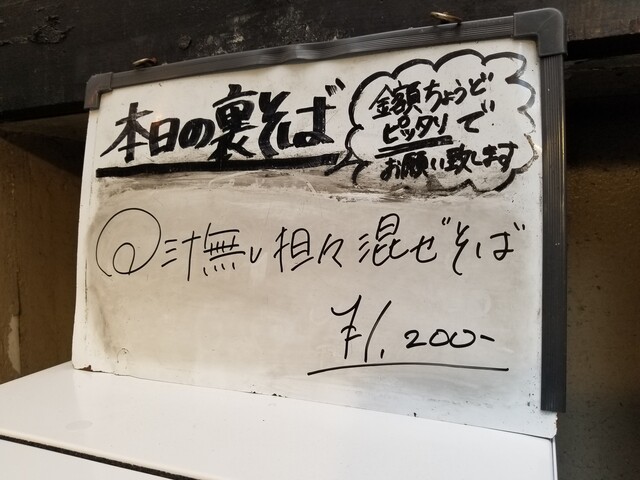 本日の裏そば
金額ちょうど
ピッタリで
お願い致します
汁無し担々混ぜそば
¥1,200-